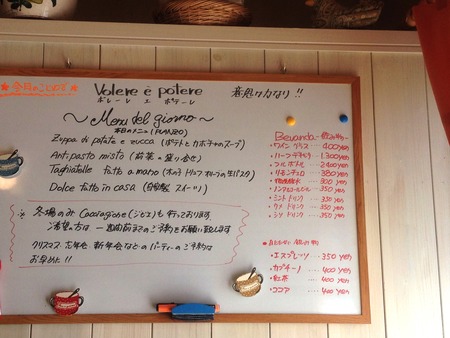 ★今月のことわざ★
Volere è potere
ボレーレ エ ポテーレ
意思は力なり!!
～Menu del giorno～
本日のメニュー(PRANZO)
Zuppa di patate e zucca (ポテトとカボチャのスープ)
Antipasto misto (前菜・盛り合せ)
Tagliatelle fatto a mano (木の子トリフオイルの生パスタ)
Dolce fatto in casa (自家製 スイーツ)
※ 冬場のみ Cacciagione (ジビエ) も行っております
ご希望の方は 一週間前までのご予約をお願い致します
クリスマス、忘年会 新年会などのパーティーのご予約は
お早めに!!
Bevanda 飲み物
・ワイン グラス … 400 yen
・ハーフデキャンタ … 1300yen
・フルボトル … 2400yen
・リモンチェロ … 380yen
・300 yen
・ノンアルコールビール … 350 yen
・ミントドリンク … 350 yen
・ウメドリンク … 350 yen
・シソドリンク … 350 yen
・エスプレーソ … 350 yen
・カプチーノ … 400 yen
・紅茶 … 400 yen
・ココア … 400 yen